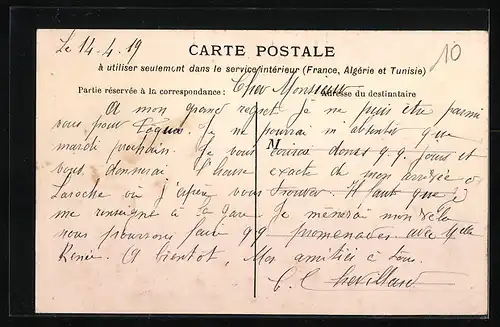 Le 14.4.19
10
CARTE POSTALE
à utiliser seulement dans le service intérieur (France, Algérie et Tunisie)
Partie réservée à la correspondance :
Adresse du destinataire
Cher Monsieur
A mon grand regret je ne puis être parmi
vous pour Paques. Je ne pourrai m'absenter que
mardi prochain. Je vous écrirai donc q.q. jours et
M
vous donnerai l'heure exacte de mon arrivée à
Laroche où j'espère vous trouver. Il faut que je
me renseigne à la gare. Je mènerai mon vélo
nous pourrons faire qq promenades avec Melle
Renée. A bientôt, Mes amitiés à tous.
C. Chevillard